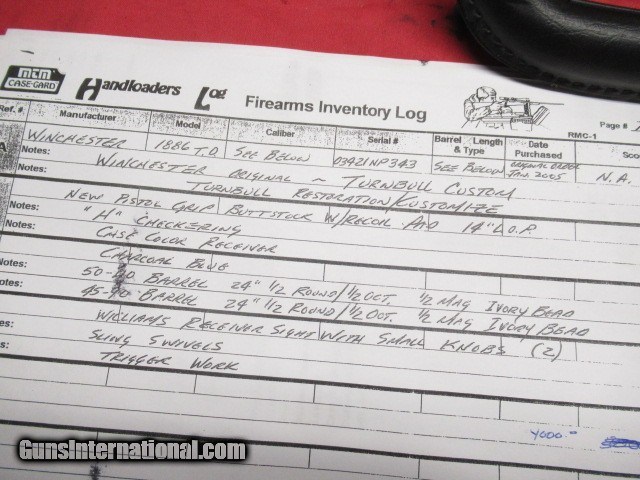 MTM
CASE-GARD
Handloaders Log
Firearms Inventory Log
Page #
RMC-1
Ref. # Manufacturer Model Caliber Serial # Barrel Length & Type Date Purchased Sco
A WINCHESTER 1886 T.D SEE BELOW 03921NP343 SEE BELOW JAN. 2005 N.A.
Notes: WINCHESTER ORIGINAL ~ TURNBULL CUSTOM
TURNBULL RESTORATION/CUSTOMIZE
Notes: NEW PISTOL GRIP BUTTSTOCK W/RECOIL PAD 14" L.O.P
"H" CHECKERING
Notes: CASE COLOR RECEIVER
CHARCOAL BLUE
Notes: 50- BARREL 24" 1/2 ROUND/1/2 OCT. 1/2 MAG IVORY BEAD
45-90 BARREL 24" 1/2 ROUND/1/2 OCT. 1/2 MAG IVORY BEAD
Notes: WILLIAMS RECEIVER SIGHT WITH SMALL KNOBS (2)
SLING SWIVELS
Notes: TRIGGER WORK
Notes:
4000-
GunsInternational.com